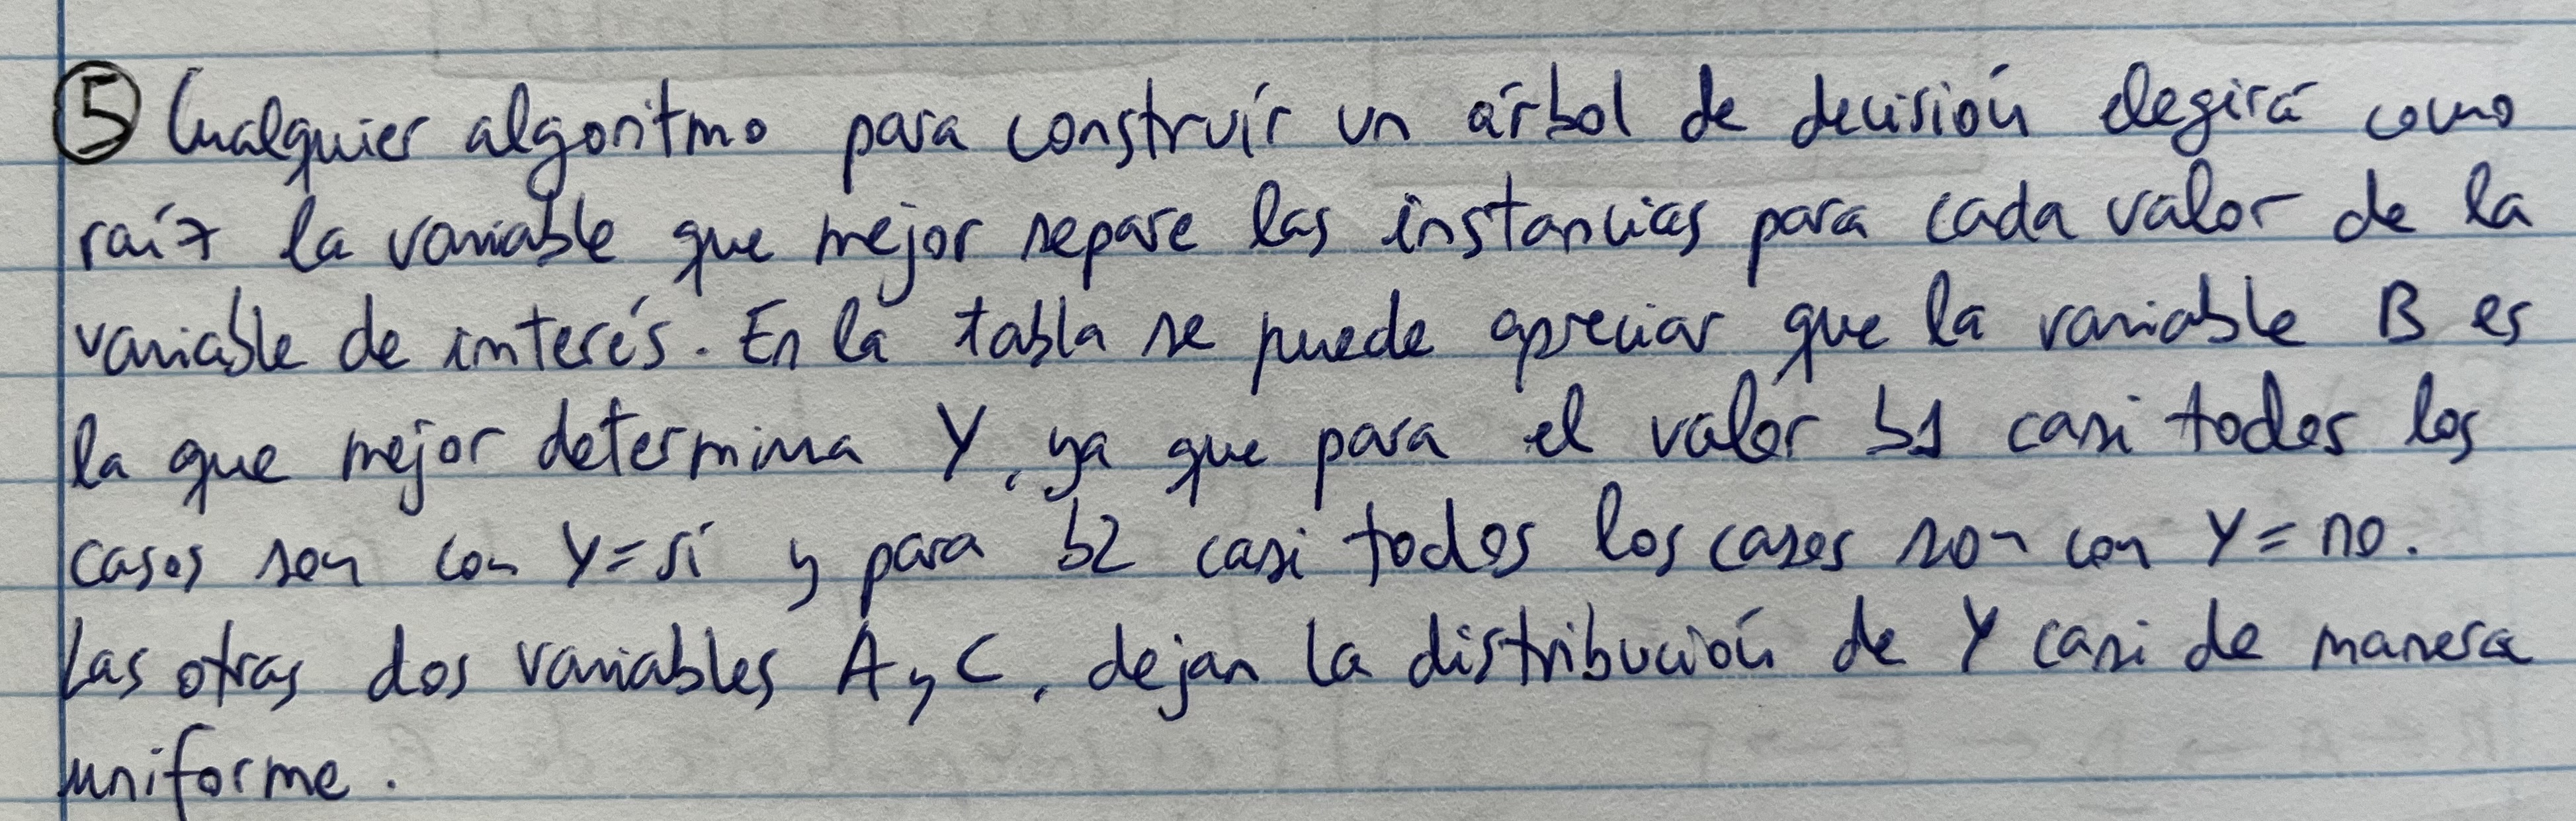 ⑤ Cualquier algoritmo para construir un árbol de decisión elegirá como
raíz la variable que mejor separe las instancias para cada valor de la
variable de interés. En la tabla se puede apreciar que la variable B es
la que mejor determina Y, ya que para el valor b1 casi todos los
casos son con Y=sí y para b2 casi todos los casos son con Y=no.
Las otras dos variables A y C, dejan la distribución de Y casi de manera
uniforme.